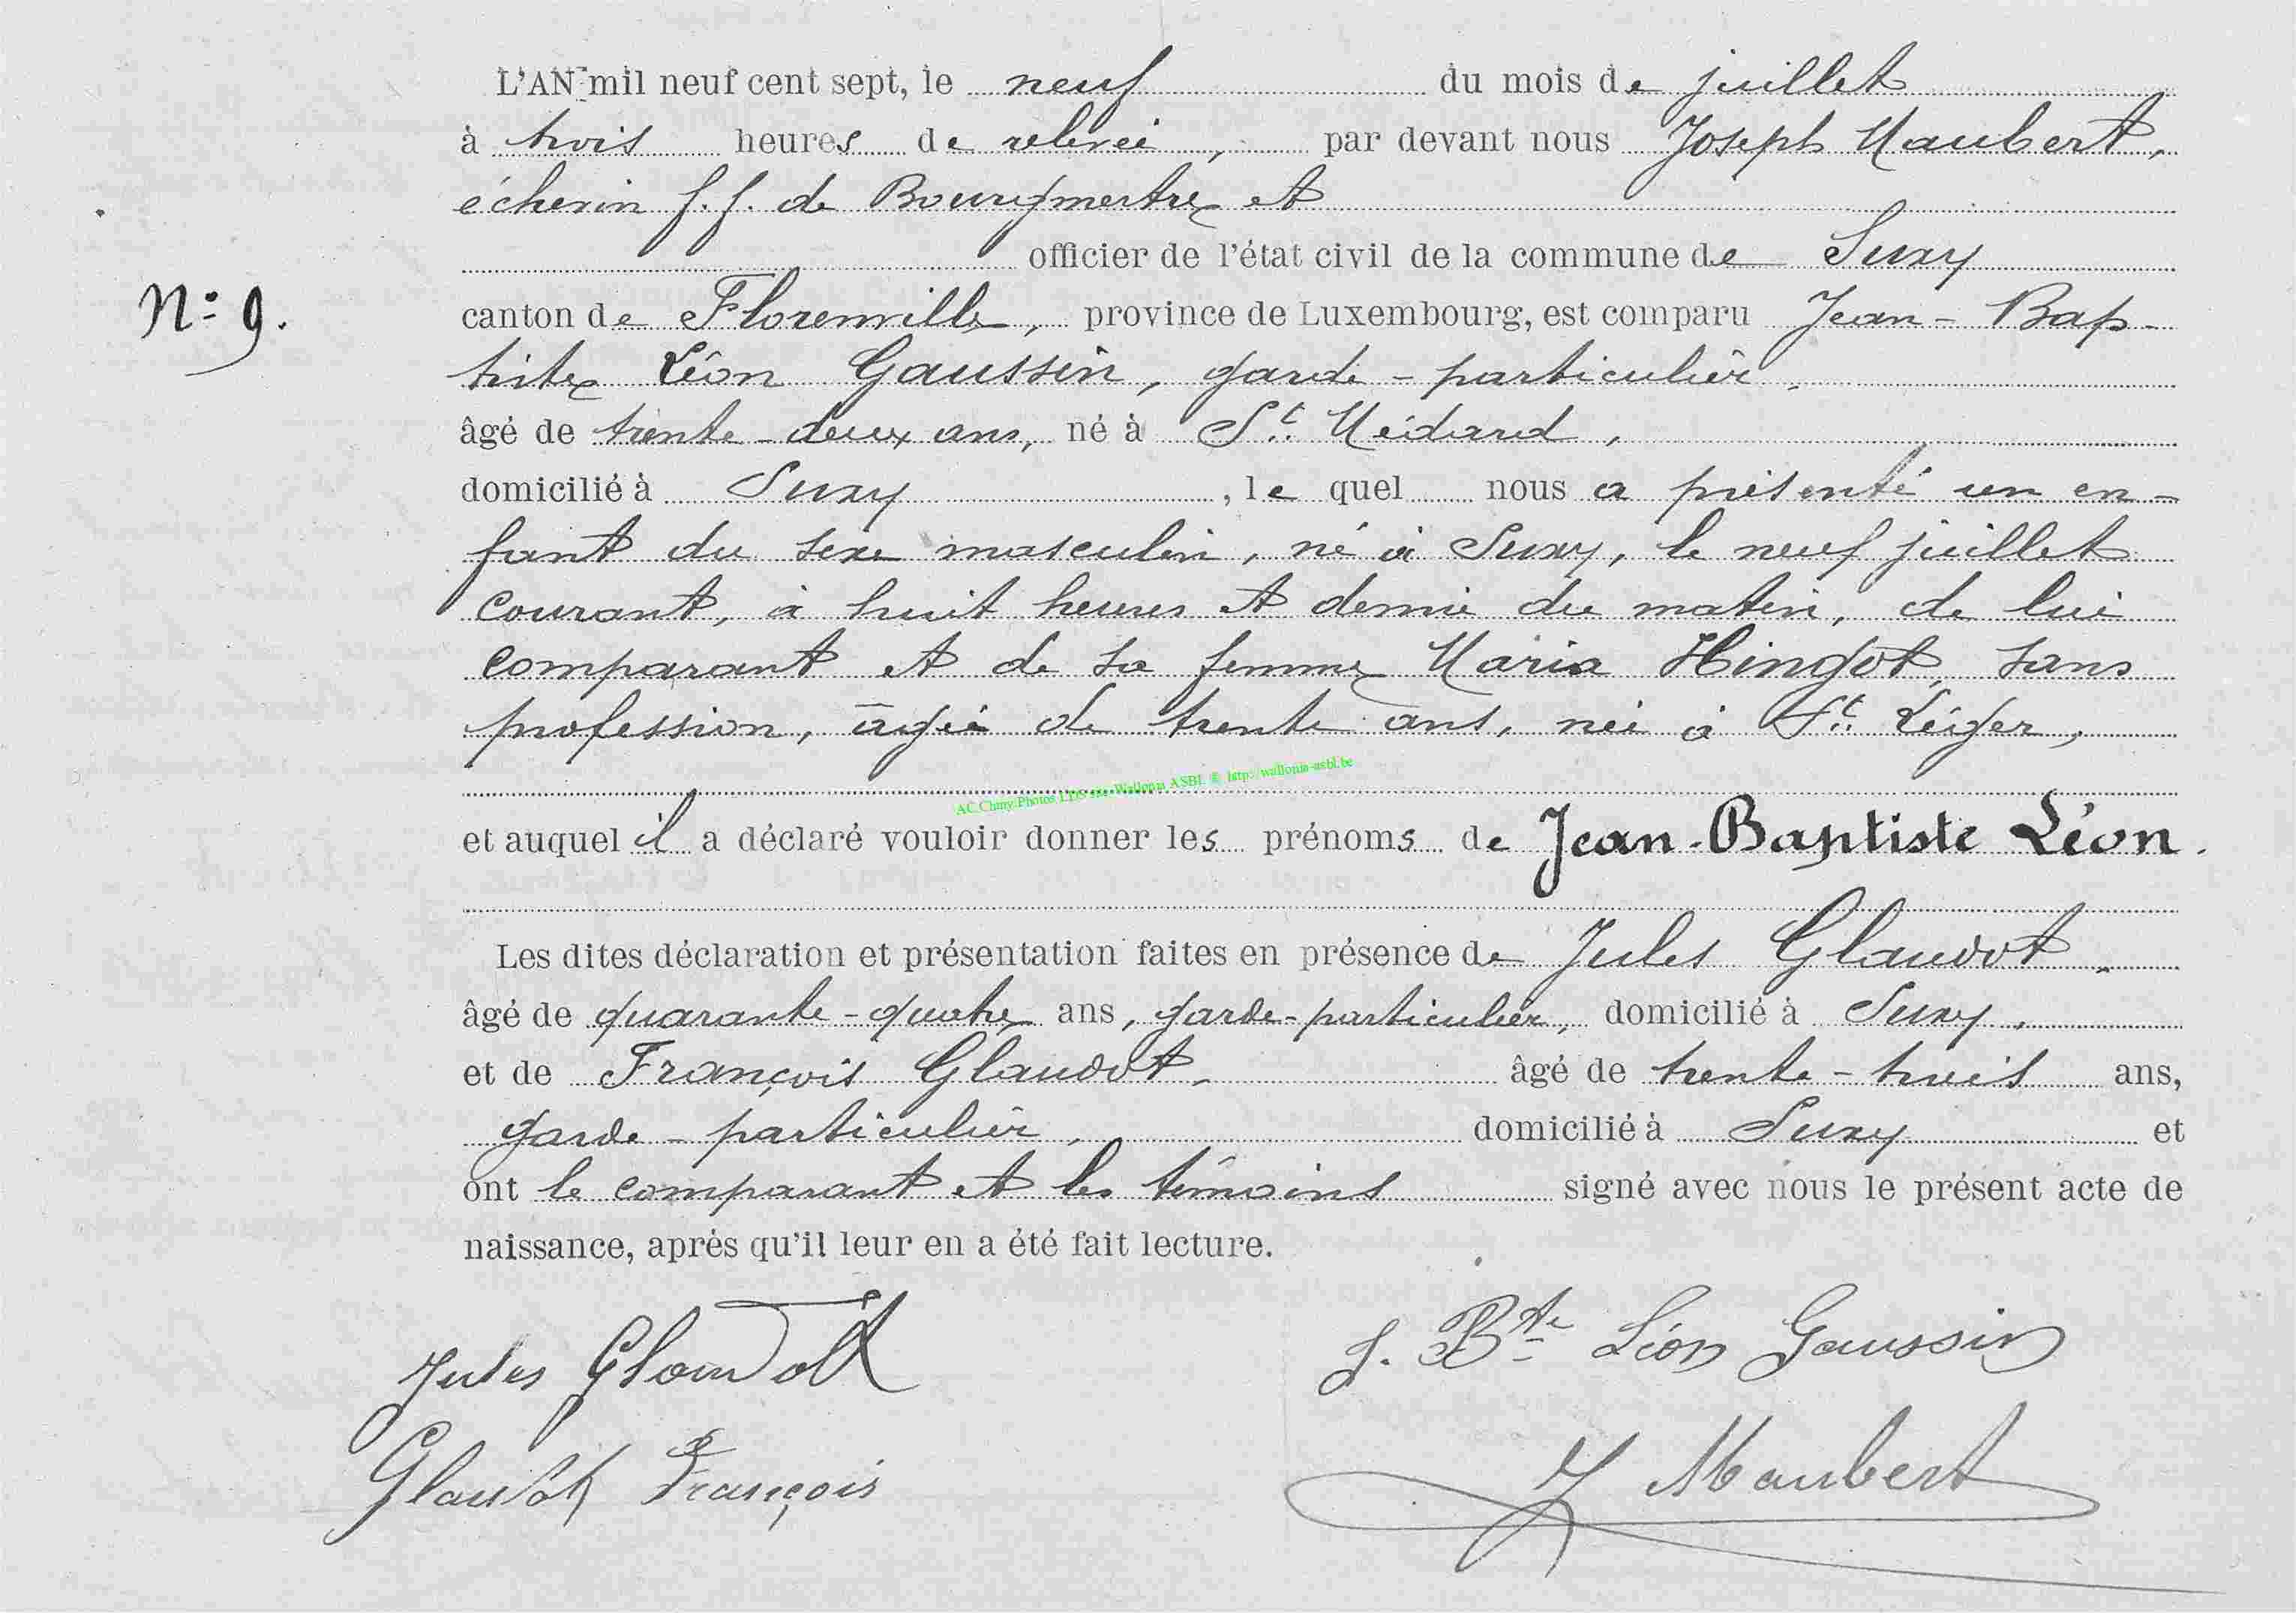 L'AN mil neuf cent sept, le neuf du mois de juillet
à trois heures de relevée, par devant nous Joseph Maubert,
échevin f.f. de Bourgmestre et
officier de l'état civil de la commune de Suxy
N° 9.
canton de Florenville, province de Luxembourg, est comparu Jean-Bap-
tiste Léon Gaussin, garde-particulier,
âgé de trente-deux ans, né à St. Médard,
domicilié à Suxy, le quel nous a présenté un en-
fant du sexe masculin, né à Suxy, le neuf juillet
courant, à huit heures et demie du matin, de lui
comparant et de sa femme Maria Hingot, sans
profession, âgée de trente ans, née à St. Léger,
AC Chiny Photos LDS via Wallonia ASBL © http://wallonia-asbl.be
et auquel il a déclaré vouloir donner les prénoms de Jean-Baptiste Léon.
Les dites déclaration et présentation faites en présence de Jules Glaudot,
âgé de quarante-quatre ans, garde-particulier, domicilié à Suxy,
et de François Glaudot, âgé de trente-trois ans,
garde-particulier, domicilié à Suxy et
ont le comparant et les témoins signé avec nous le présent acte de
naissance, après qu'il leur en a été fait lecture.
Jules Glaudot J. Bte Léon Gaussin
Glaudot François J Maubert